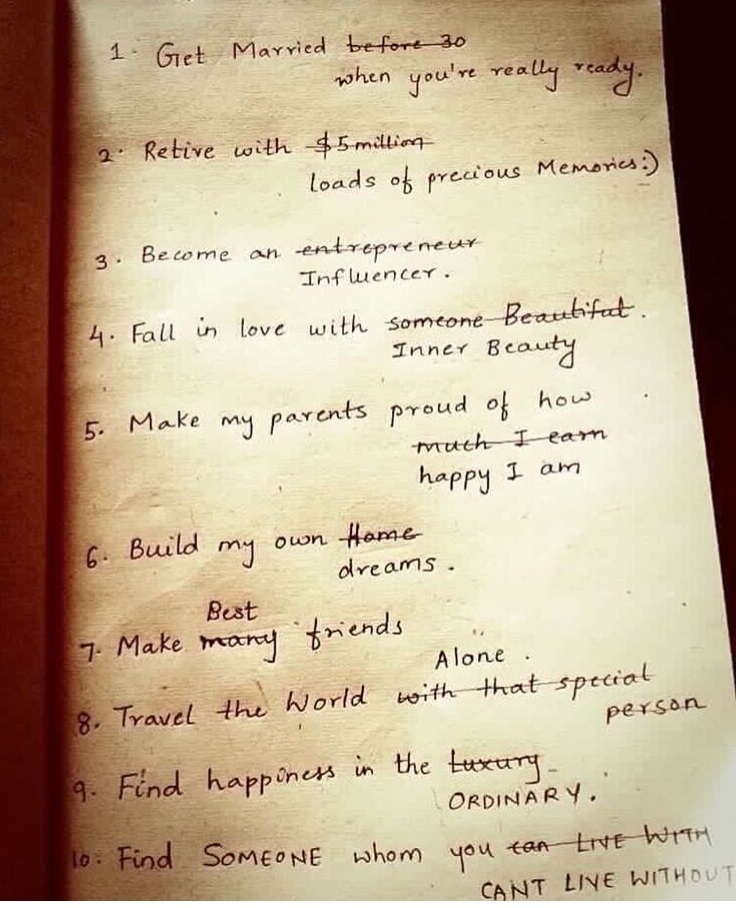 1. Get Married before 30
when you're really ready.
2. Retire with $5million
loads of precious Memories:)
3. Become an entrepreneur
Influencer.
4. Fall in love with someone Beautiful.
Inner Beauty
5. Make my parents proud of how
much I earn
happy I am
6. Build my own Home
dreams.
Best
7. Make many friends
Alone.
8. Travel the World with that special
person
9. Find happiness in the Luxury
ORDINARY.
10. Find SOMEONE whom you can LIVE WITH
CANT LIVE WITHOUT